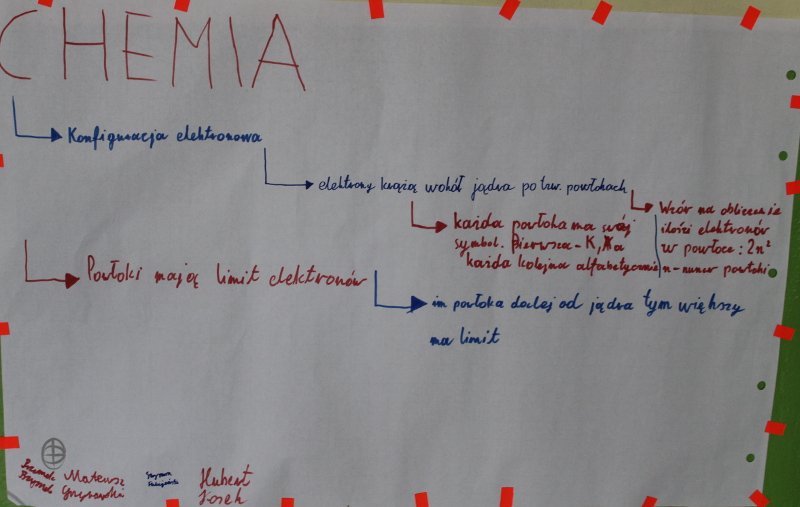 CHEMIA
Konfiguracja elektronowa
elektrony krążą wokół jądra po tzw. powłokach
każda powłoka ma swój
symbol. Pierwsza - K, A
każda kolejna alfabetycznie
Wzór na obliczenie
ilości elektronów
w powłoce: 2n²
n - numer powłoki
Powłoki mają limit elektronów
im powłoka dalej od jądra tym większy
ma limit
Mateusz
Hubert